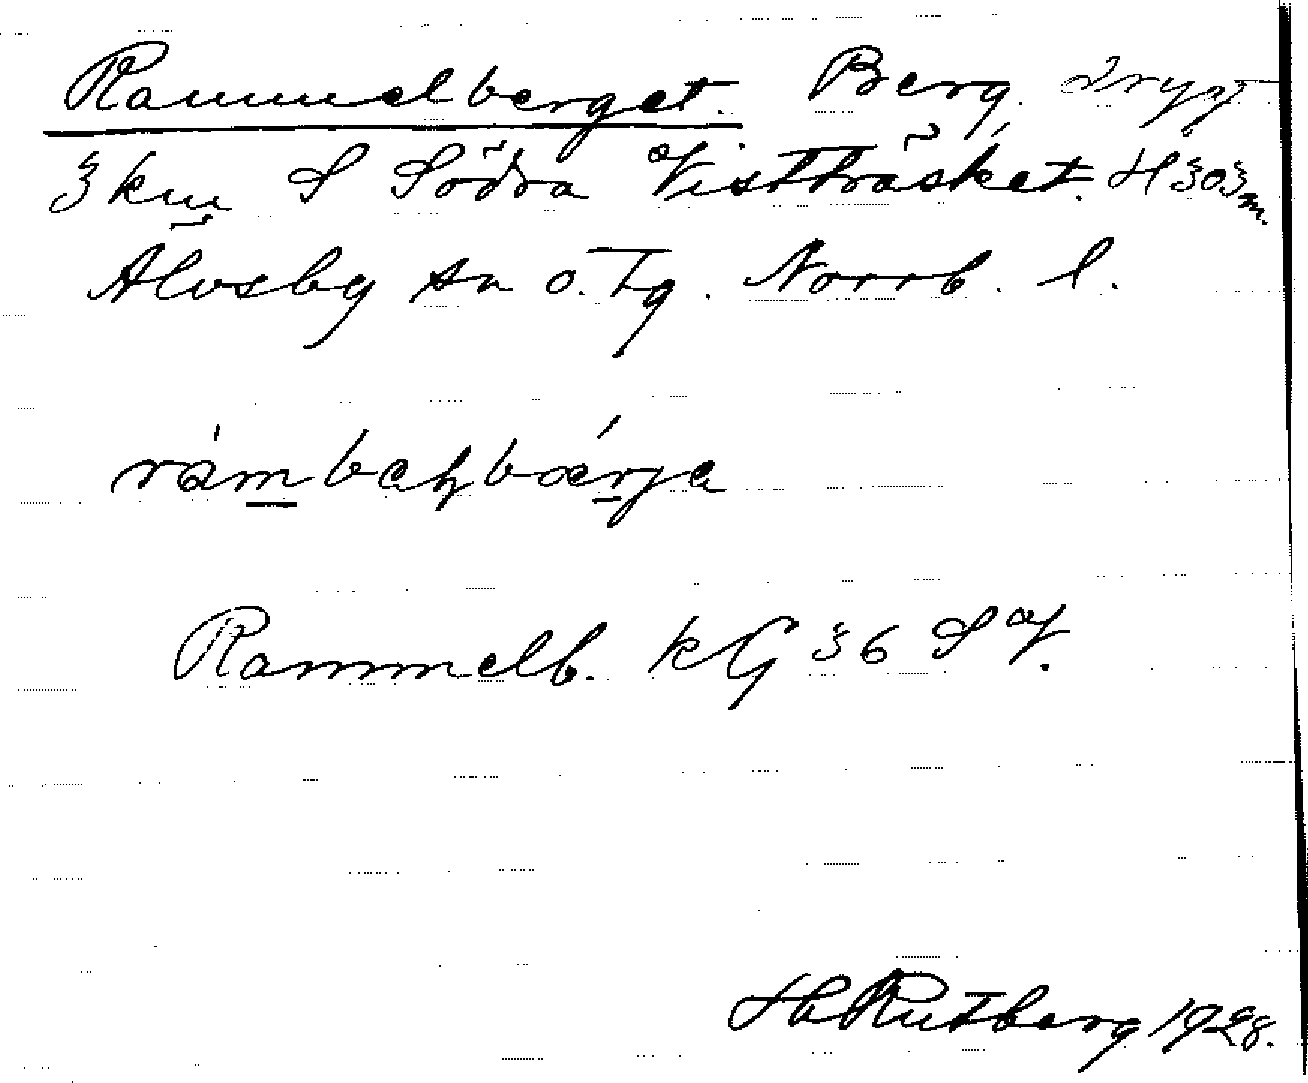 Rammelberget. Berg, drygt
3 km S Södra Vistträsket. H 303 m.
Älvsby sn o. Tg. Norrb. l.
ràmbaɽbærja
Rammelb. kG 36 SV.
H Rutberg 1928.